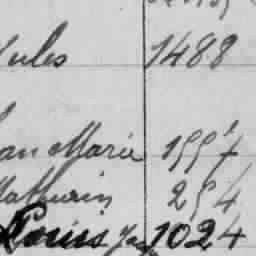 Jules 1488
Jean Marie 1557
Mathurin 254
Louis 1024